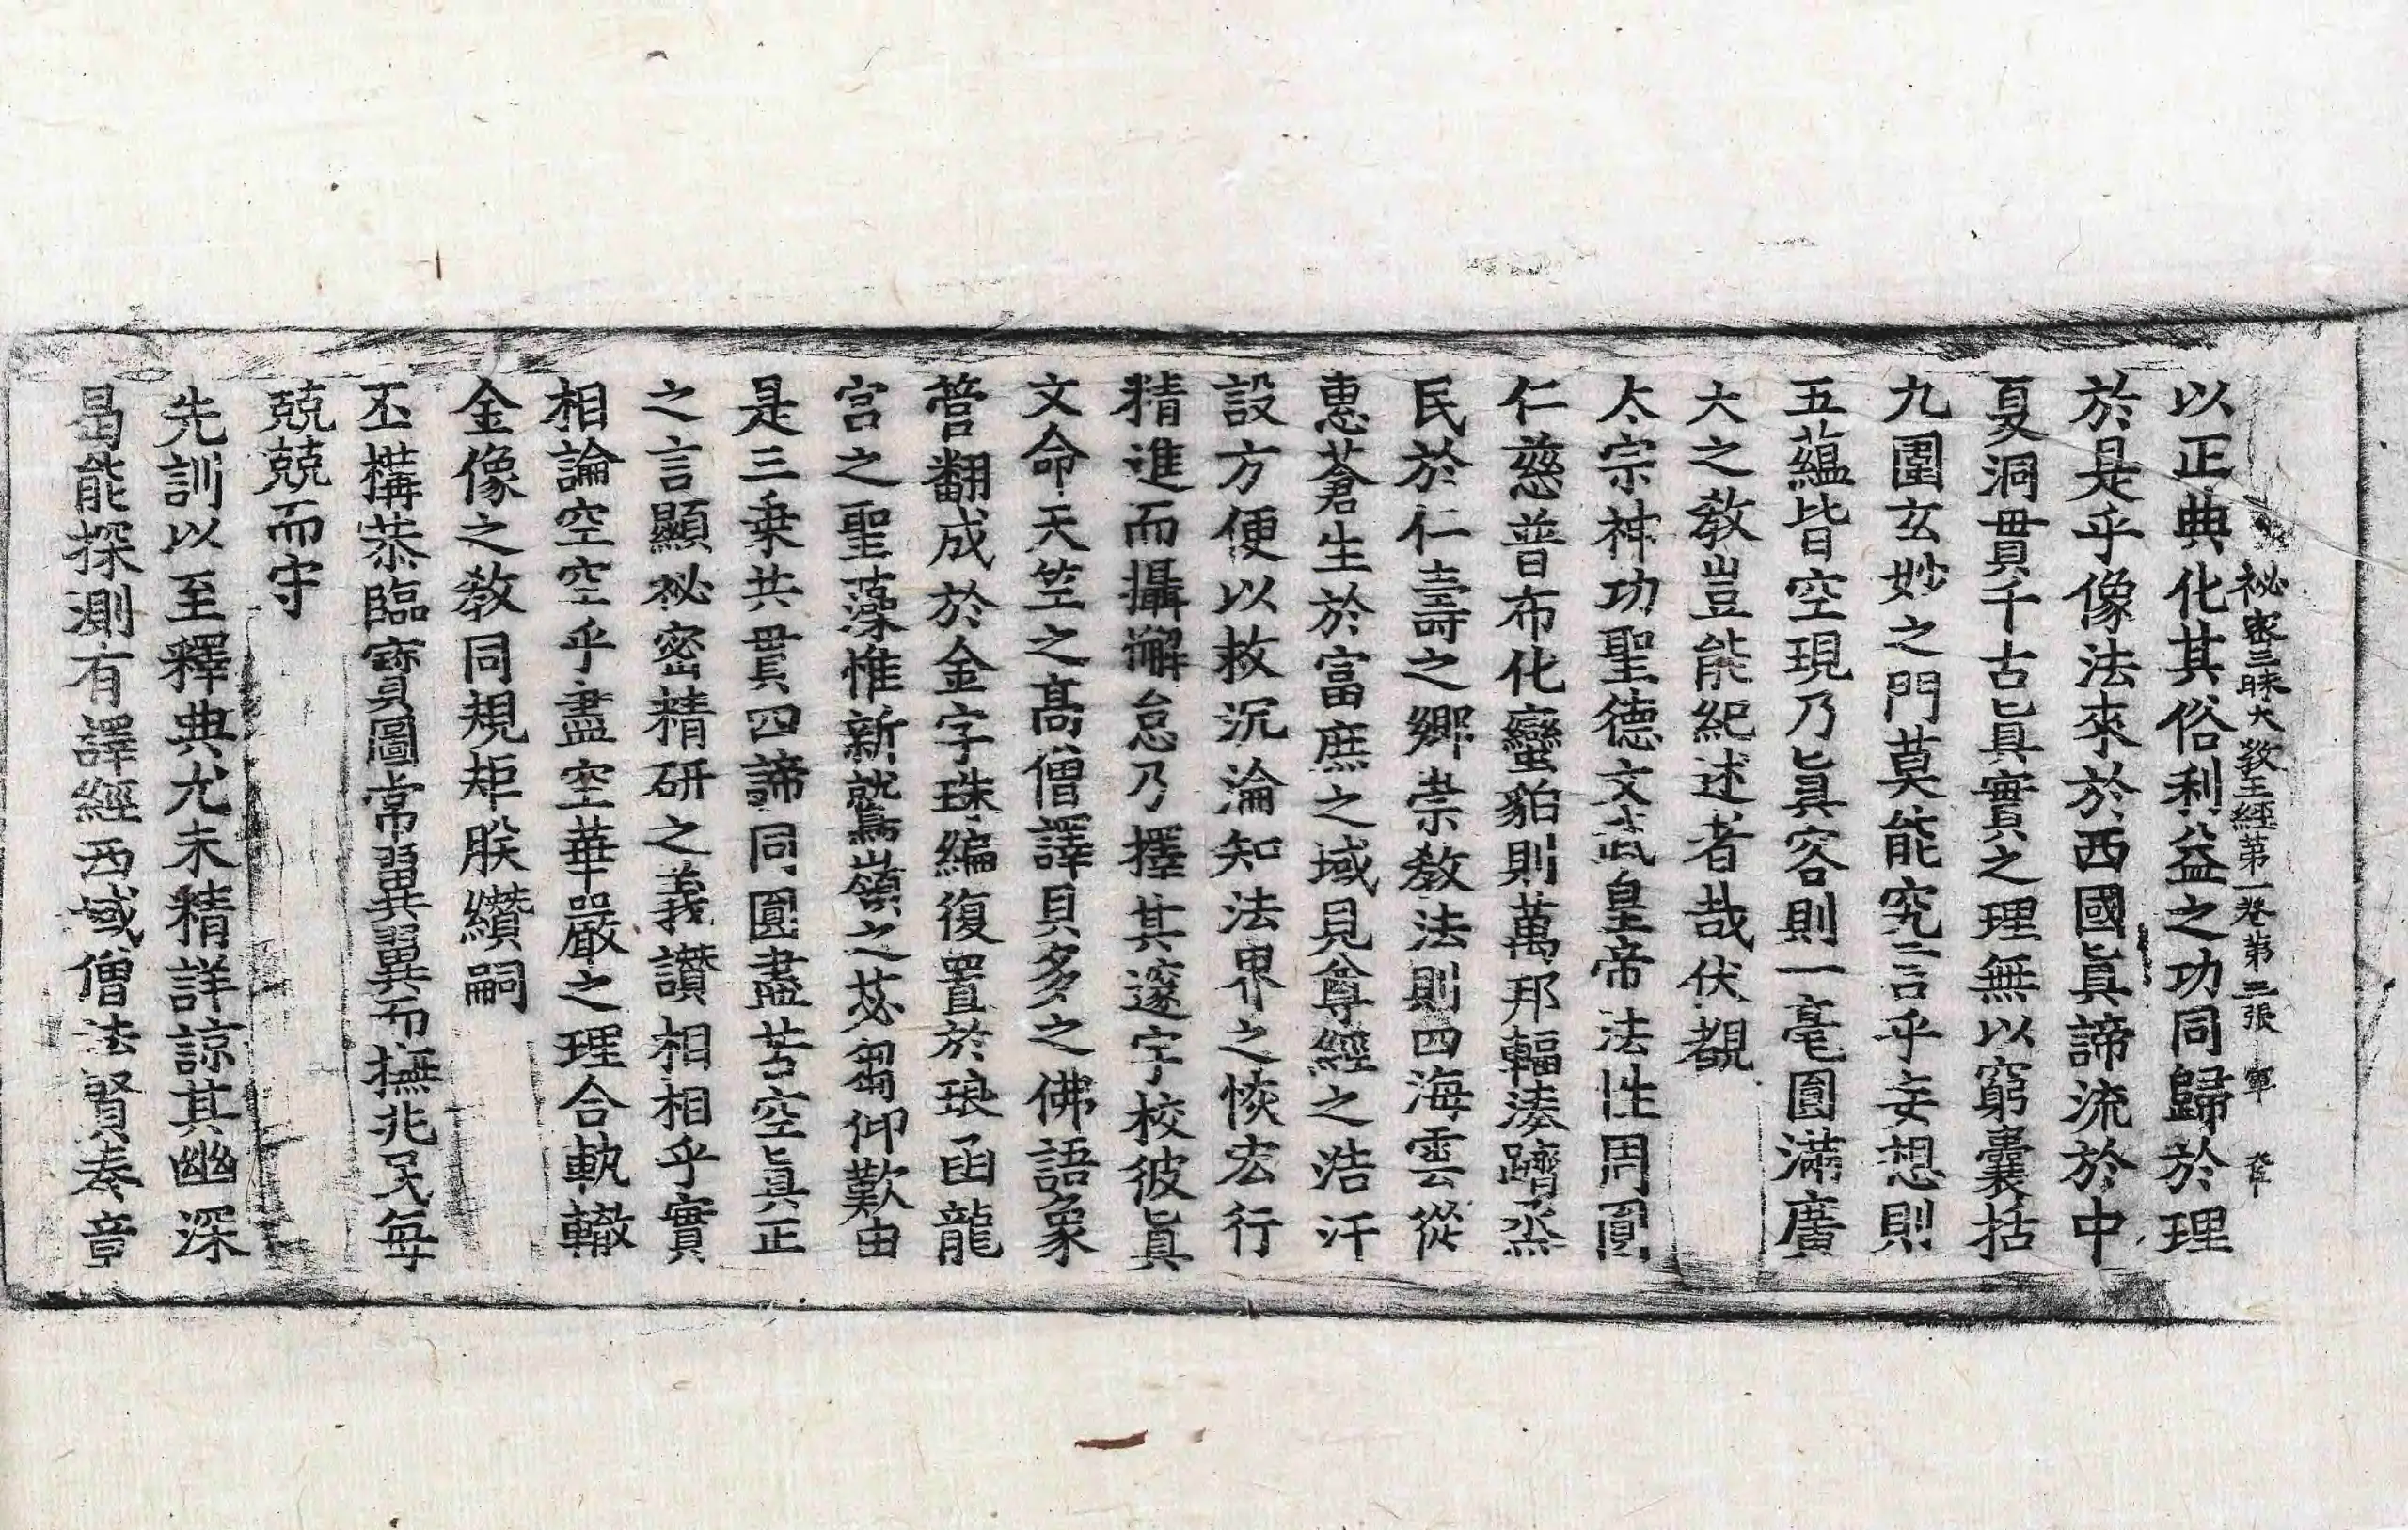 祕密三昧大教王經第一卷 第二張 寧
以正典化其俗利益之功同歸於理
於是乎像法來於西國眞諦流於中
夏洞貫千古眞實之理無以窮囊括
九圍玄妙之門莫能究言乎妄想則
五蘊皆空現乃眞容則一毫圓滿廣
大之教豈能紀述者哉伏覩
太宗神功聖德文武皇帝法性周圓
仁慈普布化蠻貊則萬邦輻湊躋烝
民於仁壽之鄉崇教法則四海雲從
惠蒼生於富庶之域見尊經之浩汗
設方便以救沉淪知法界之恢宏行
精進而攝懈怠乃擇其邃宇校彼眞
文命天竺之高僧譯貝多之佛語象
管翻成於金字珠編復置於琅函龍
宮之聖藻惟新鷲嶺之苾蒭仰歎由
是三乘共貫四諦同圓盡苦空眞正
之言顯祕密精研之義讚相相乎實
相論空空乎盡空華嚴之理合軌轍
金像之教同規矩朕纘嗣
丕構恭臨寶圖常翼翼而撫兆民每
兢兢而守
先訓以至釋典尤未精詳諒其幽深
曷能探測有譯經西域僧法賢奏章